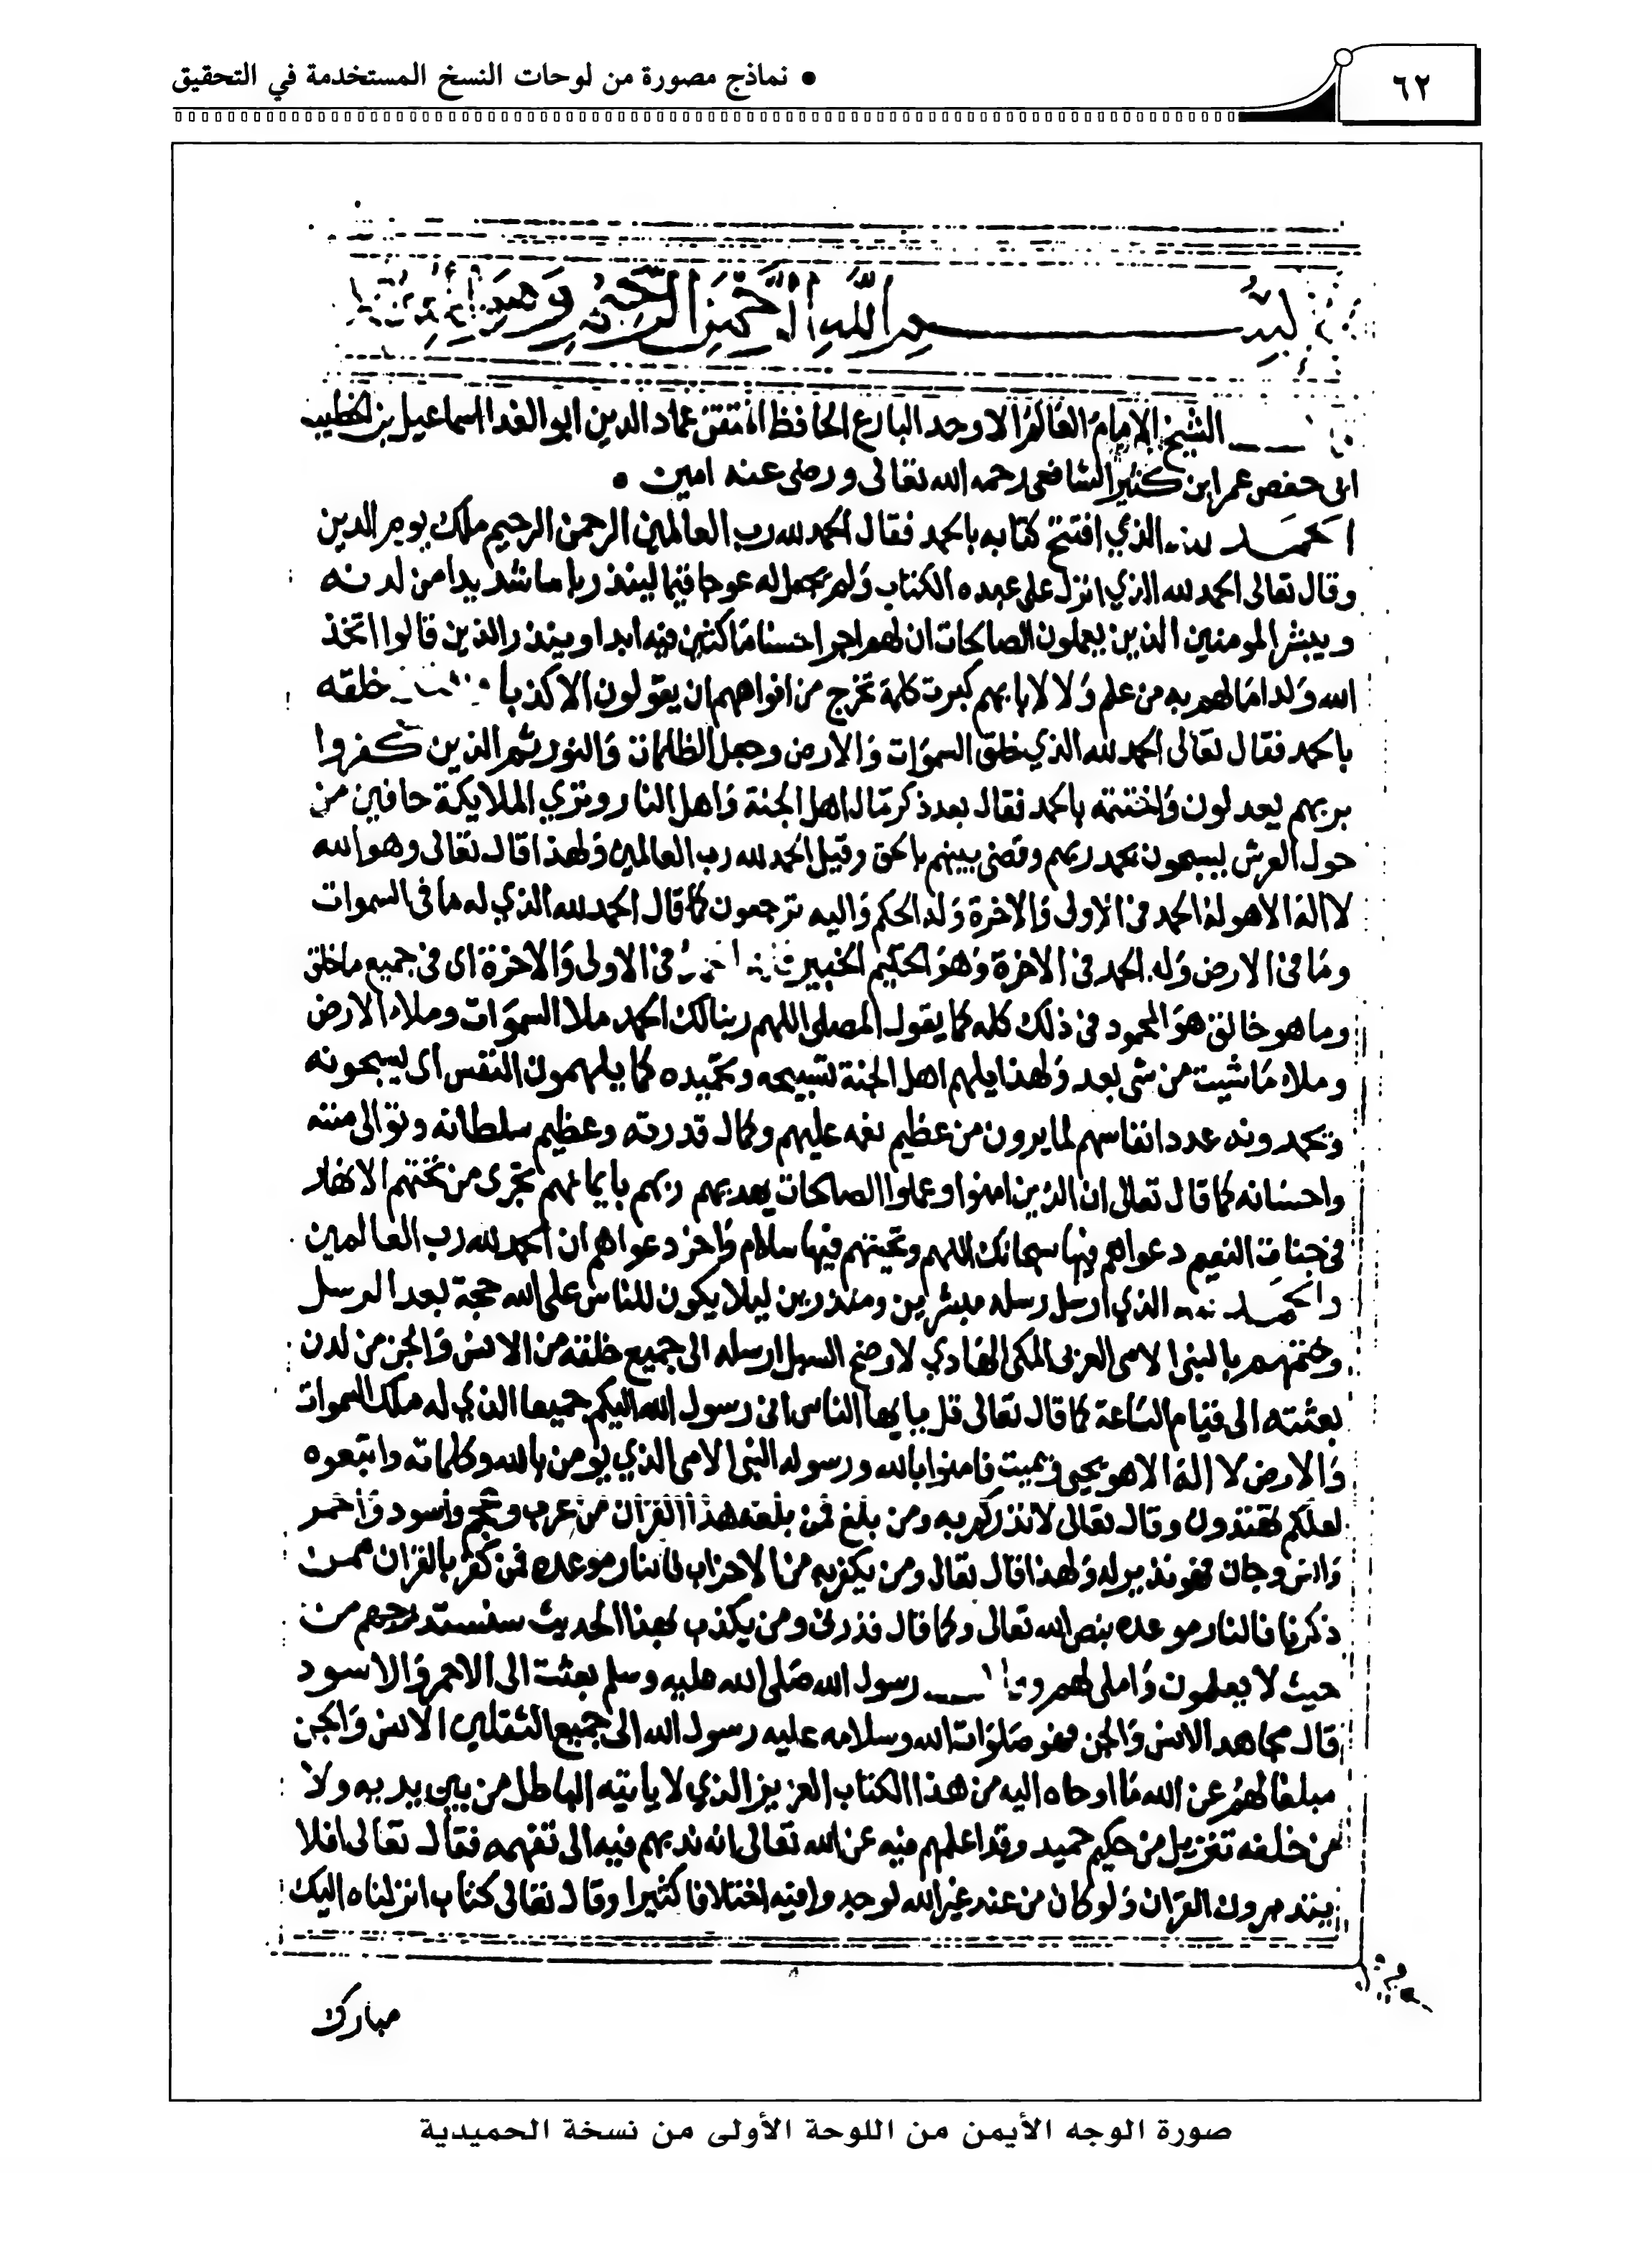 ٦٢
• نماذج مصورة من لوحات النسخ المستخدمة في التحقيق
بسم الله الرحمن الرحيم وهو
الشيخ الامام العالم الاوحد البارع الحافظ المتقن عماد الدين ابو الفدا اسماعيل بن الخطيب
ابى حفص عمر ابن كثير الشافعى رحمه الله تعالى ورضى عنه امين •
الحمد لله الذي افتتح كتابه بالحمد فقال الحمد لله رب العالمين الرحمن الرحيم ملك يوم الدين
وقال تعالى الحمد لله الذي انزل على عبده الكتاب ولم يجعل له عوجا قيما لينذر باسا شديدا من لدنه
ويبشر المومنين الذين يعملون الصالحات ان لهم اجرا حسنا ماكثين فيه ابدا وينذر الذين قالوا اتخذ
الله ولدا ما لهم به من علم ولا لابايهم كبرت كلمة تخرج من افواههم ان يقولون الا كذبا خلقه
بالحمد فقال تعالى الحمد لله الذي خلق السموات والارض وجعل الظلمات والنور ثم الذين كفروا
بربهم يعدلون واختتمه بالحمد فقال بعد ذكر مال اهل الجنة واهل النار وتري الملايكة حافين من
حول العرش يسبحون بحمد ربهم وقضى بينهم بالحق وقيل الحمد لله رب العالمين ولهذا قال تعالى وهو الله
لا اله الا هو له الحمد فى الاولى والاخرة وله الحكم واليه ترجعون كما قال الحمد لله الذي له ما فى السموات
وما فى الارض وله الحمد فى الاخرة وهو الحكيم الخبير فى الاولى والاخرة اى فى جميع ما خلق
وما هو خالق هو المحمود فى ذلك كله كما يقول المصلى اللهم ربنا لك الحمد ملا السموات وملاء الارض
وملاء ما شيت من شى بعد ولهذا يلهم اهل الجنة تسبيحه وتحميده كما يلهمون النفس اى يسبحونه
ويحمدونه عدد انفاسهم لما يرون من عظيم نعمه عليهم وكمال قدرته وعظيم سلطانه وتوالى مننه
واحسانه كما قال تعالى ان الذين امنوا وعملوا الصالحات يهديهم ربهم بايمانهم تجرى من تحتهم الانهار
فى جنات النعيم دعواهم فيها سبحانك اللهم وتحيتهم فيها سلام واخر دعواهم ان الحمد لله رب العالمين
والحمد لله الذي ارسل رسله مبشرين ومنذرين ليلا يكون للناس على الله حجة بعد الرسل
وختمهم بالنبى الامى العربى المكى الهادي لاوضح السبل ارسله الى جميع خلقه من الانس والجن من لدن
بعثته الى قيام الساعة كما قال تعالى قل يايها الناس انى رسول الله اليكم جميعا الذي له ملك السموات
والارض لا اله الا هو يحيى ويميت فامنوا بالله ورسوله النبى الامى الذي يومن بالله وكلماته واتبعوه
لعلكم تهتدون وقال تعالى لانذركم به ومن بلغ فمن بلغه هذا القران من عرب وعجم واسود واحمر
وانس وجان فهو نذير له ولهذا قال تعالى ومن يكفر به من الاحزاب فالنار موعده فمن كفر بالقران ممن
ذكرنا فالنار موعده بنص الله تعالى وكما قال فذرنى ومن يكذب بهذا الحديث سنستدرجهم من
حيث لا يعلمون واملى لهم رسول الله صلى الله عليه وسلم بعثت الى الاحمر والاسود
قال مجاهد الانس والجن فهو صلوات الله وسلامه عليه رسول الله الى جميع الثقلين الانس والجن
مبلغا لهم عن الله ما اوحاه اليه من هذا الكتاب العزيز الذي لا ياتيه الباطل من بين يديه ولا
من خلفه تنزيل من حكيم حميد وقد اعلمهم فيه عن الله تعالى انه ندبهم فيه الى تفهمه فقال تعالى افلا
يتدبرون القران ولو كان من عند غير الله لوجدوا فيه اختلافا كثيرا وقال تعالى كتاب انزلناه اليك
مبارك
صورة الوجه الأيمن من اللوحة الأولى من نسخة الحميدية